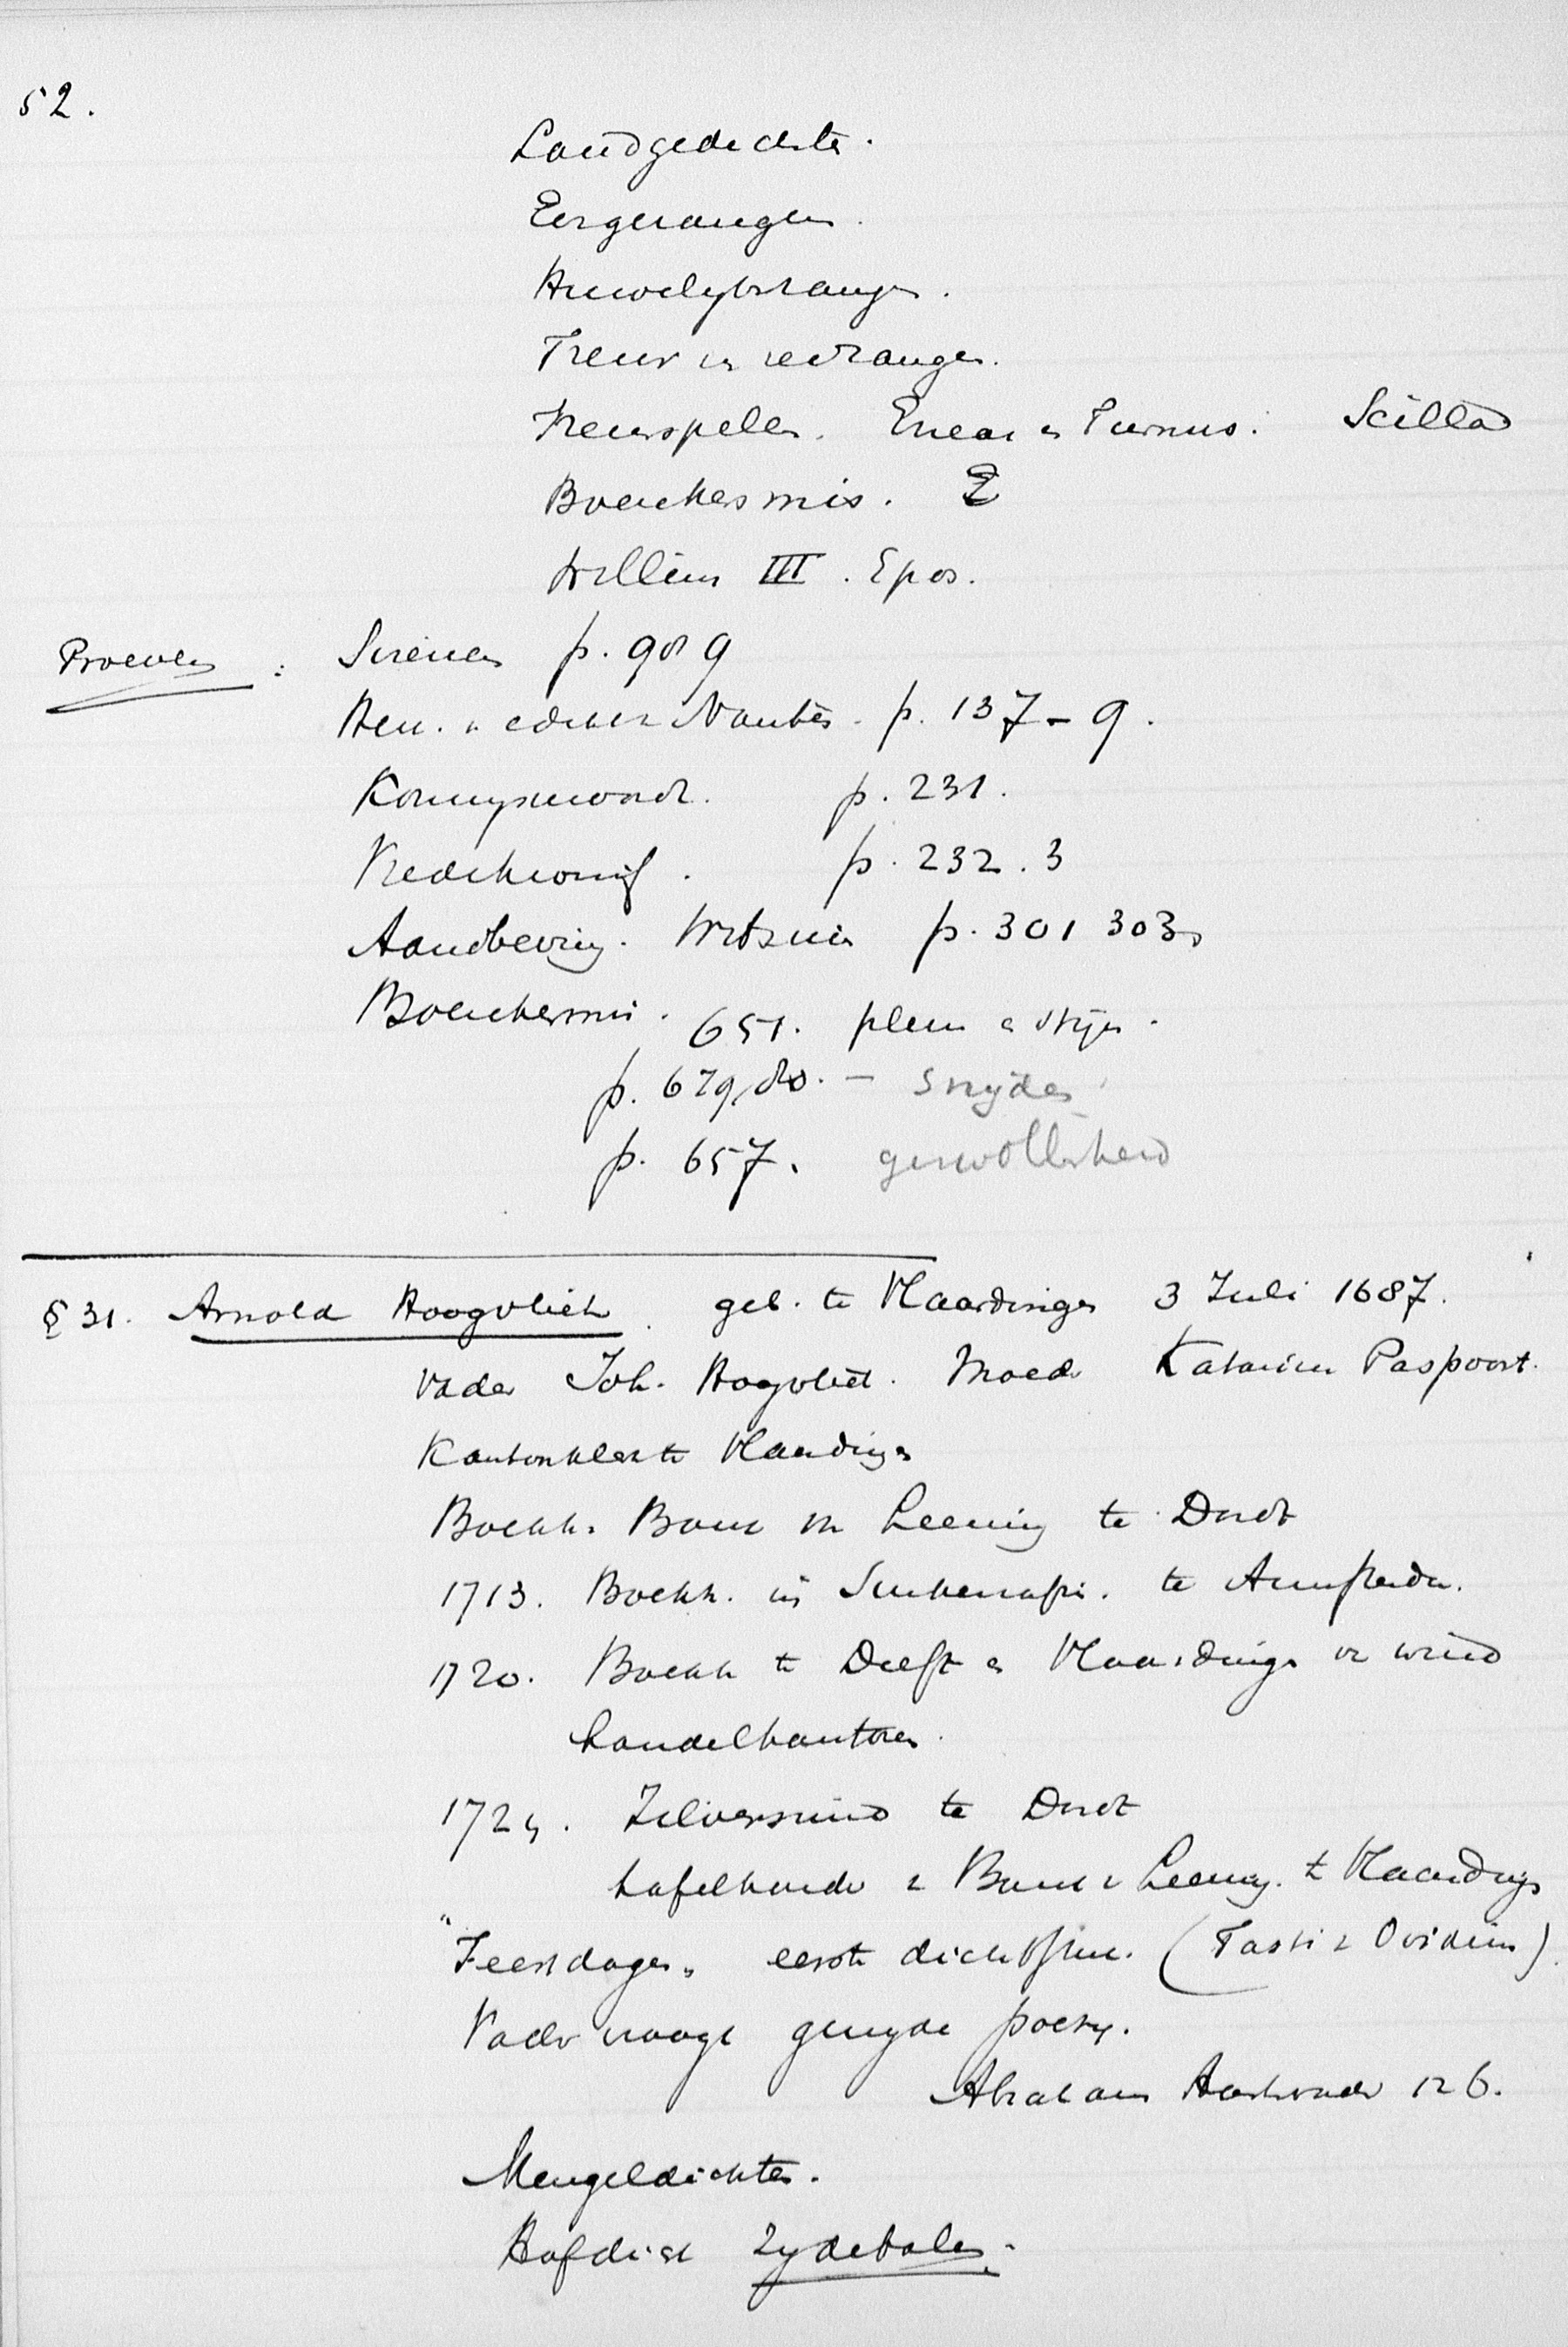 52.
Landgedichte.
Eergezangen.
Huwelykszangen.
Treur en
Treurspelen. Eneas en Turnus. Scilla
Boerekermis.
Willem III. Epos.
Proeven : Sirenen p. 989
Her. v. edict v Nantes. p. 137-9.
Koningsmoord. p. 231.
Vredekroning. p. 232.3
Aardbeving. p. 301 303
Boerekermis. 651.
p. 679,80. - snyder
p. 657. gezwollenheid
§ 31. Arnold Hoogvliet. geb. te Vlaardingen 3 Juli 1687.
Vader Joh. Hoogvliet. Moeder Katarina Paspoort.
Kantoorklerk te Vlaardingen
Boekh. Bank van Leening te Dordt
1713. Boekh. in te Amsterda.
1720. Boekh te Delft en Vlaardingen v wind
handelkantoren.
1724. te Dordt
tafelhouder v Bank v Leening. te Vlaardinge
"Feestdagen" eerste dichtstuk. (Fasti v Ovidius).
Vader vraagt gewyde poezy.
Abraham Aartsvader 126.
Mengeldichten.
Hofdicht Zydebalen.